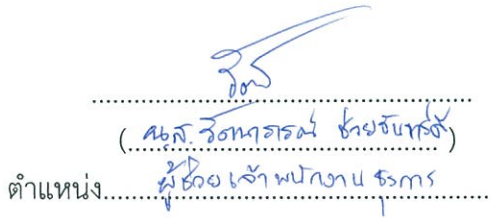 (น.ส. รัตนาภรณ์ ช่วยจันทร์ดี)
ตำแหน่ง ผู้ช่วยเจ้าพนักงานธุรการ